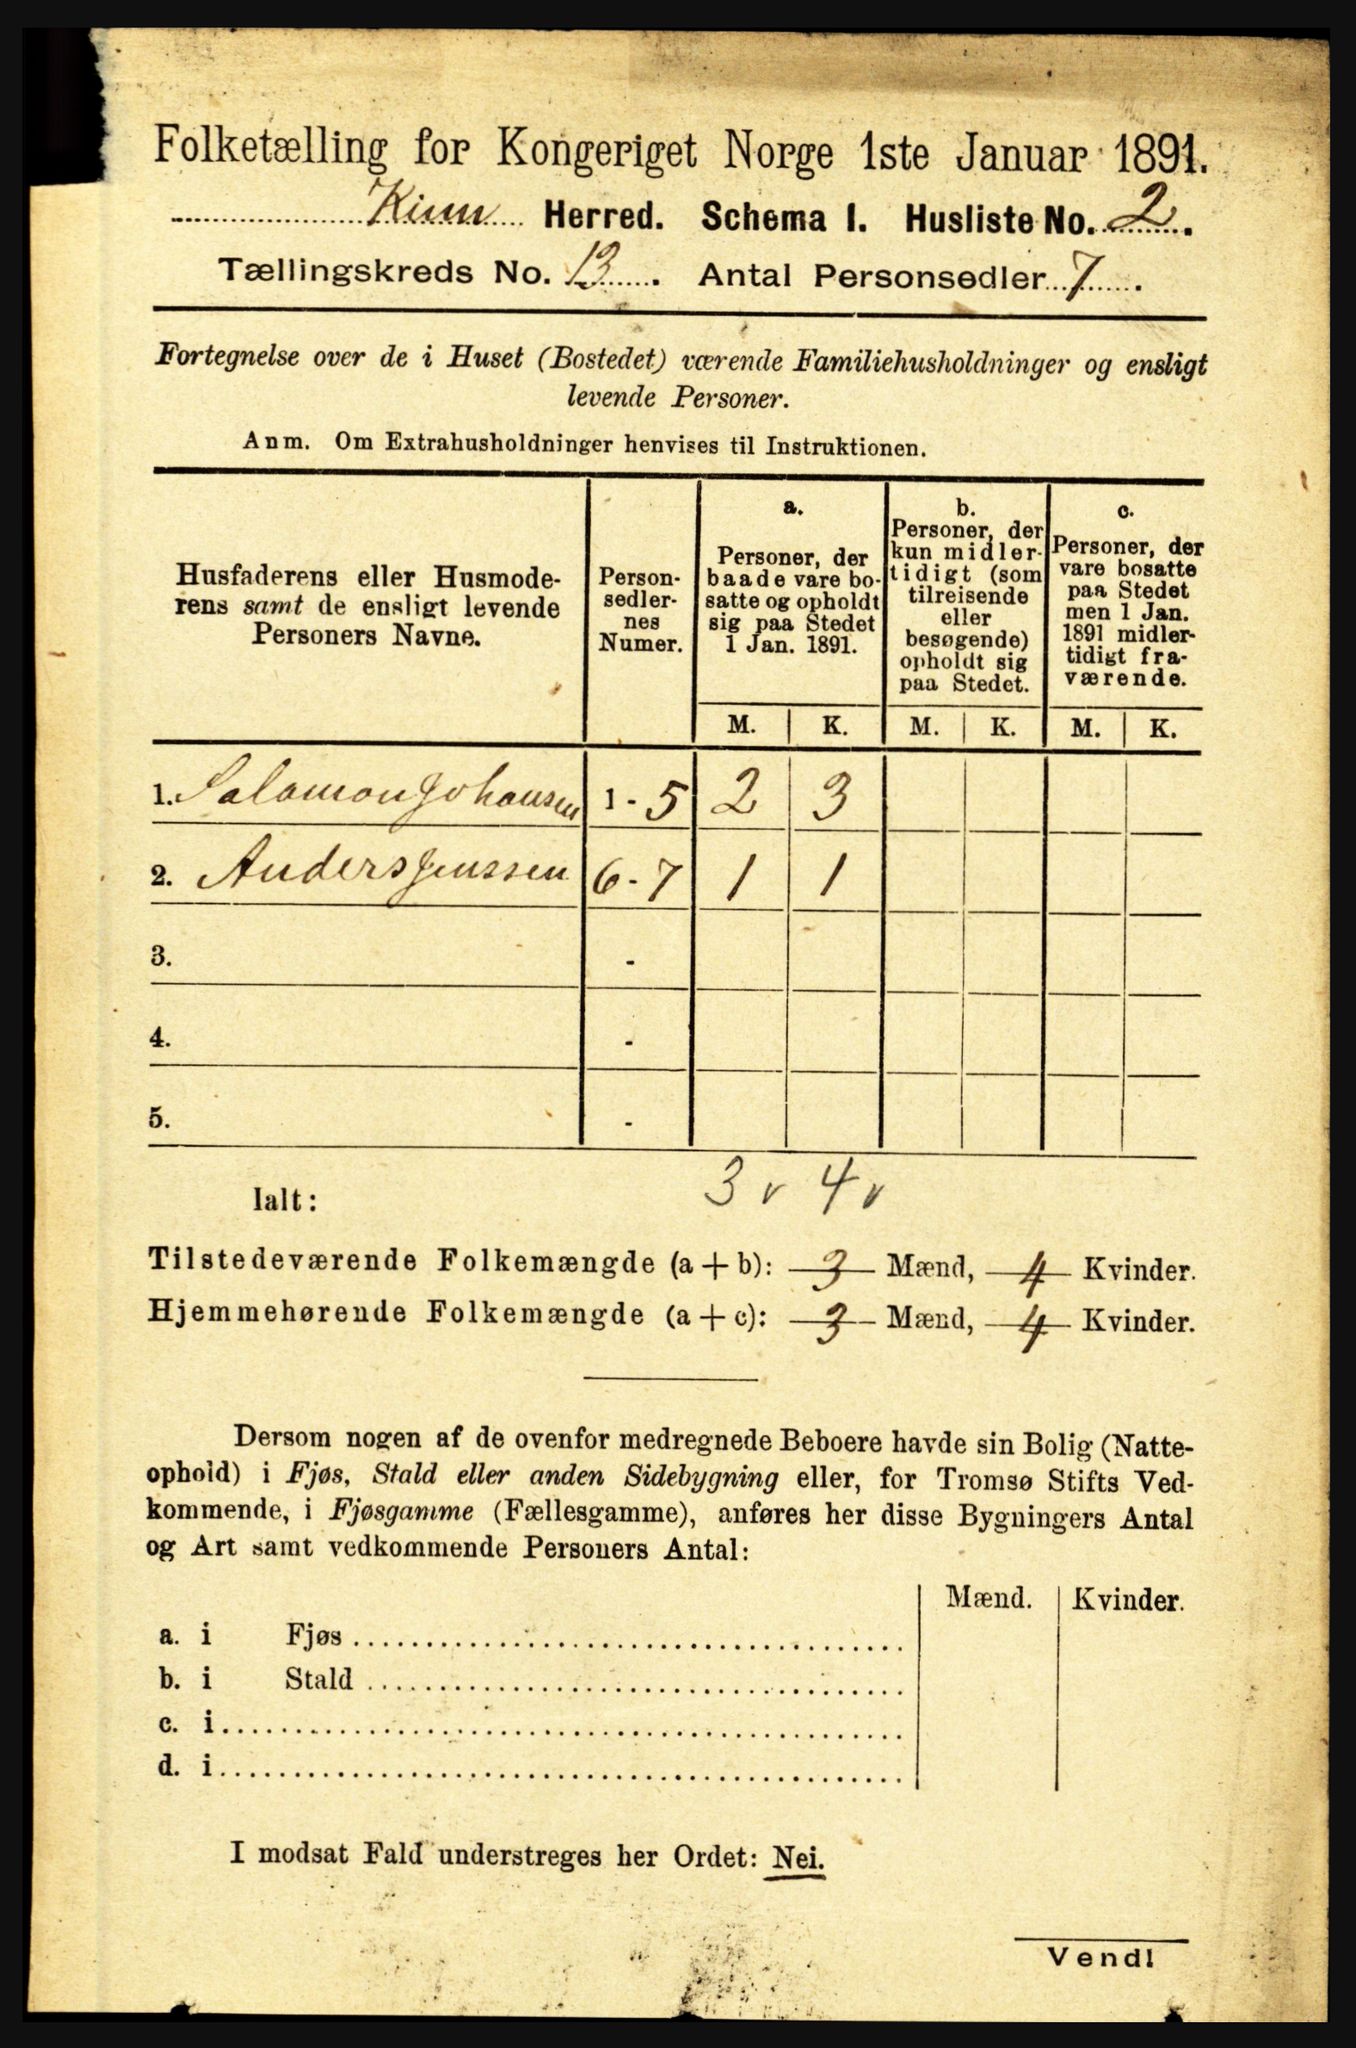 Folketælling for Kongeriget Norge 1ste Januar 1891.
Kinn Herred. Schema I. Husliste No. 2.
Tællingskreds No. 13. Antal Personsedler 7.
Fortegnelse over de i Huset (Bostedet) værende Familiehusholdninger og ensligt
levende Personer.
Anm. Om Extrahusholdninger henvises til Instruktionen.
Husfaderens eller Husmode-
rens samt de ensligt levende
Personers Navne.
Person-
sedler-
nes
Numer.
a.
Personer, der
baade vare bo-
satte og opholdt
sig paa Stedet
1 Jan. 1891.
b.
Personer, der
kun midler-
tidigt (som
tilreisende
eller
besøgende)
opholdt sig
paa Stedet.
c.
Personer, der
vare bosatte
paa Stedet
men 1 Jan.
1891 midler-
tidigt fra-
værende.
M. K. M. K. M. K.
1. Salamon Johansen 1 - 5 2 3
2. Anders Jenssen 6 - 7 1 1
3. -
4. -
5. -
Ialt: 3 v 4 v
Tilstedeværende Folkemængde (a + b): 3 Mænd, 4 Kvinder.
Hjemmehørende Folkemængde (a + c): 3 Mænd, 4 Kvinder.
Dersom nogen af de ovenfor medregnede Beboere havde sin Bolig (Natte-
ophold) i Fjøs, Stald eller anden Sidebygning eller, for Tromsø Stifts Ved-
kommende, i Fjøsgamme (Fællesgamme), anføres her disse Bygningers Antal
og Art samt vedkommende Personers Antal:
Mænd. Kvinder.
a. i Fjøs
b. i Stald
c. i
d. i
I modsat Fald understreges her Ordet: Nei.
Vend!